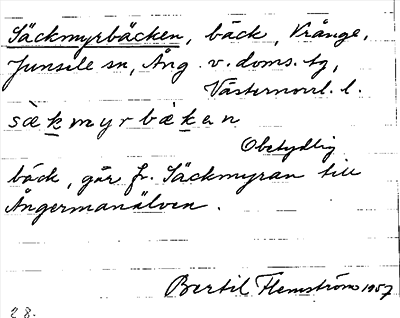 Säckmyrbäcken, bäck, Krånge,
Junsele sn, Ång. v. doms. tg,
Västernorrl. l.
sä̀kmyrbä̀kan
Obetydlig
bäck, går fr. Säckmyran till
Ångermanälven.
Bertil Flemström 1957
28.